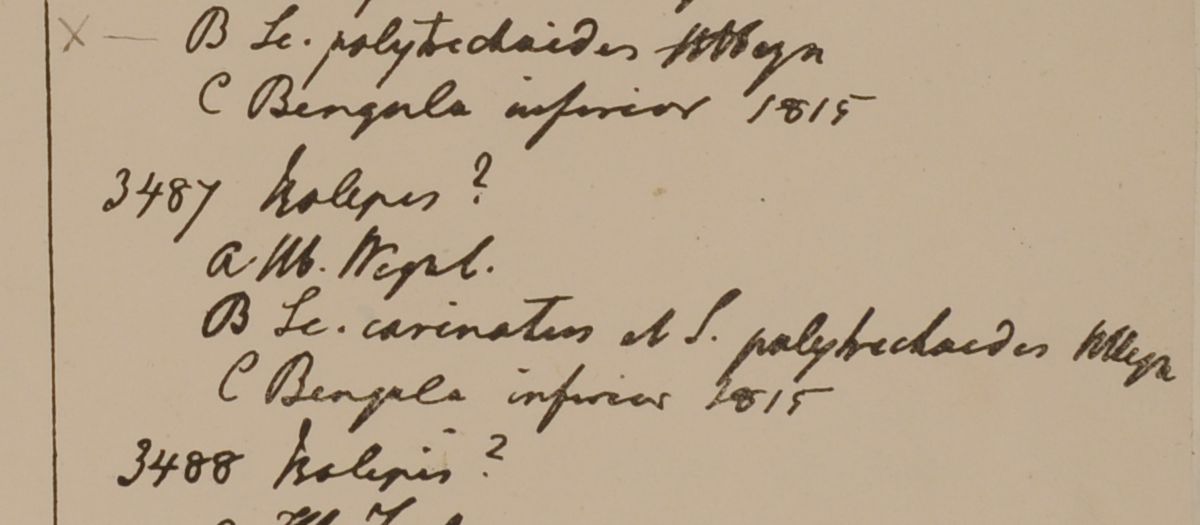 X — B Sc. polytrichoides HbHeyn
C Bengala inferior 1815
3487 Isolepis ?
a Hb. Wight.
B Sc. carinatus et S. polytrichoides HbHeyn
C Bengala inferior 1815
3488 Isolepis ?